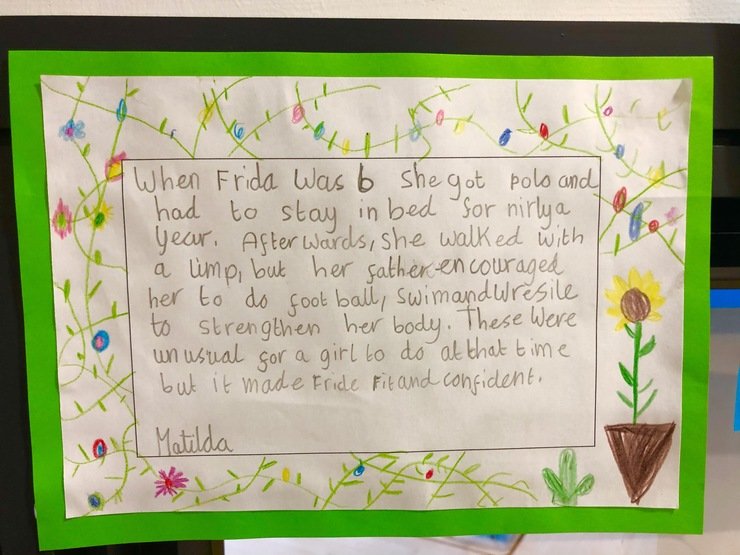 When Frida was 6 she got polo and
had to stay in bed for nirlya
year. Afterwards, she walked with
a limp, but her father encouraged
her to do foot ball, swimandwresile
to strengthen her body. These were
unusual for a girl to do at that time
but it made Fride fit and confident.
Matilda